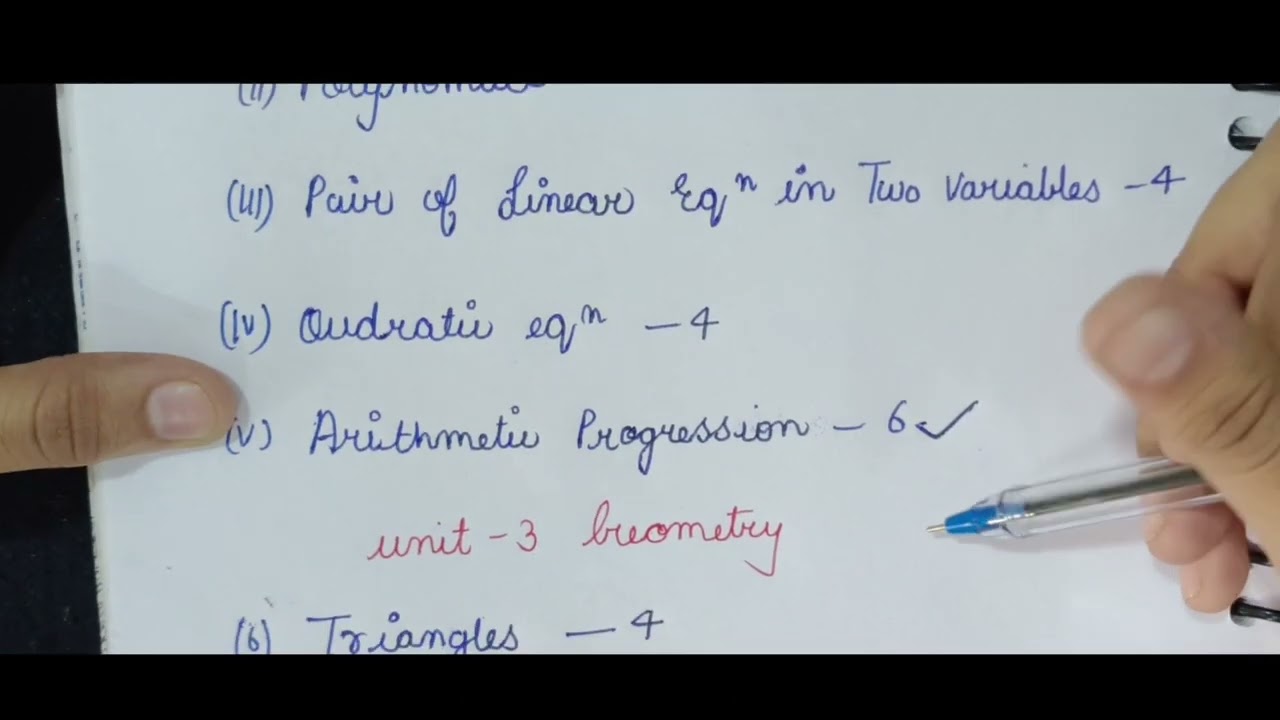 (II) Polynomial
(III) Pair of Linear Eqⁿ in Two Variables - 4
(IV) Qudratic eqⁿ - 4
(V) Arithmetic Progression - 6 ✓
unit - 3 Geometry
(6) Triangles - 4